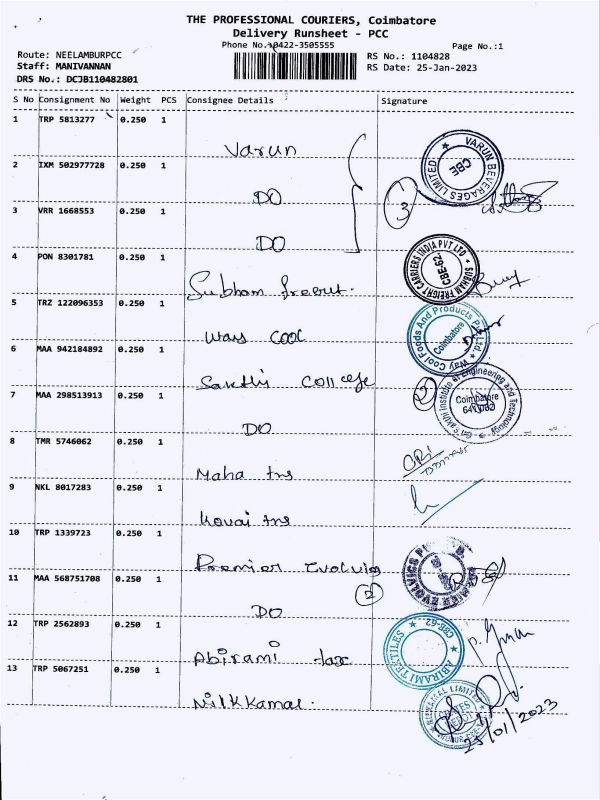 THE PROFESSIONAL COURIERS, Coimbatore
Delivery Runsheet - PCC
Phone No.:0422-3505555
Page No.:1
Route: NEELAMBURPCC
RS No.: 1104828
Staff: MANIVANNAN
RS Date: 25-Jan-2023
DRS No.: DCJB110482801
S No Consignment No Weight PCS Consignee Details Signature
1 TRP 5813277 0.250 1
Varun
VARUN BEVERAGES LIMITED ★ CBE ★
2 IXM 502977728 0.250 1
DO
3
3 VRR 1668553 0.250 1
DO
4 PON 8301781 0.250 1
Subham
SUBHAM FREIGHT CARRIERS INDIA PVT LTD ★ CBE-62
5 TRZ 122096353 0.250 1
Ways Cool
Way Cool Foods And Products Pvt. Ltd. ★ Coimbatore
6 MAA 942184892 0.250 1
Sakthi College
2
Institute of Engineering and Technology
Coimbatore
7 MAA 298513913 0.250 1
DO
8 TMR 5746062 0.250 1
Maha tns
9 NKL 8017283 0.250 1
Kovai tns
10 TRP 1339723 0.250 1
Premier Evolvics
PREMIER EVOLVICS
11 MAA 568751708 0.250 1
2
DO
12 TRP 2562893 0.250 1
Abirami tax
ABIRAMI TEXTILES ★ CBE-62 ★
13 TRP 5067251 0.250 1
Nilkkamal.
NILKAMAL LIMITED
25/01/2023